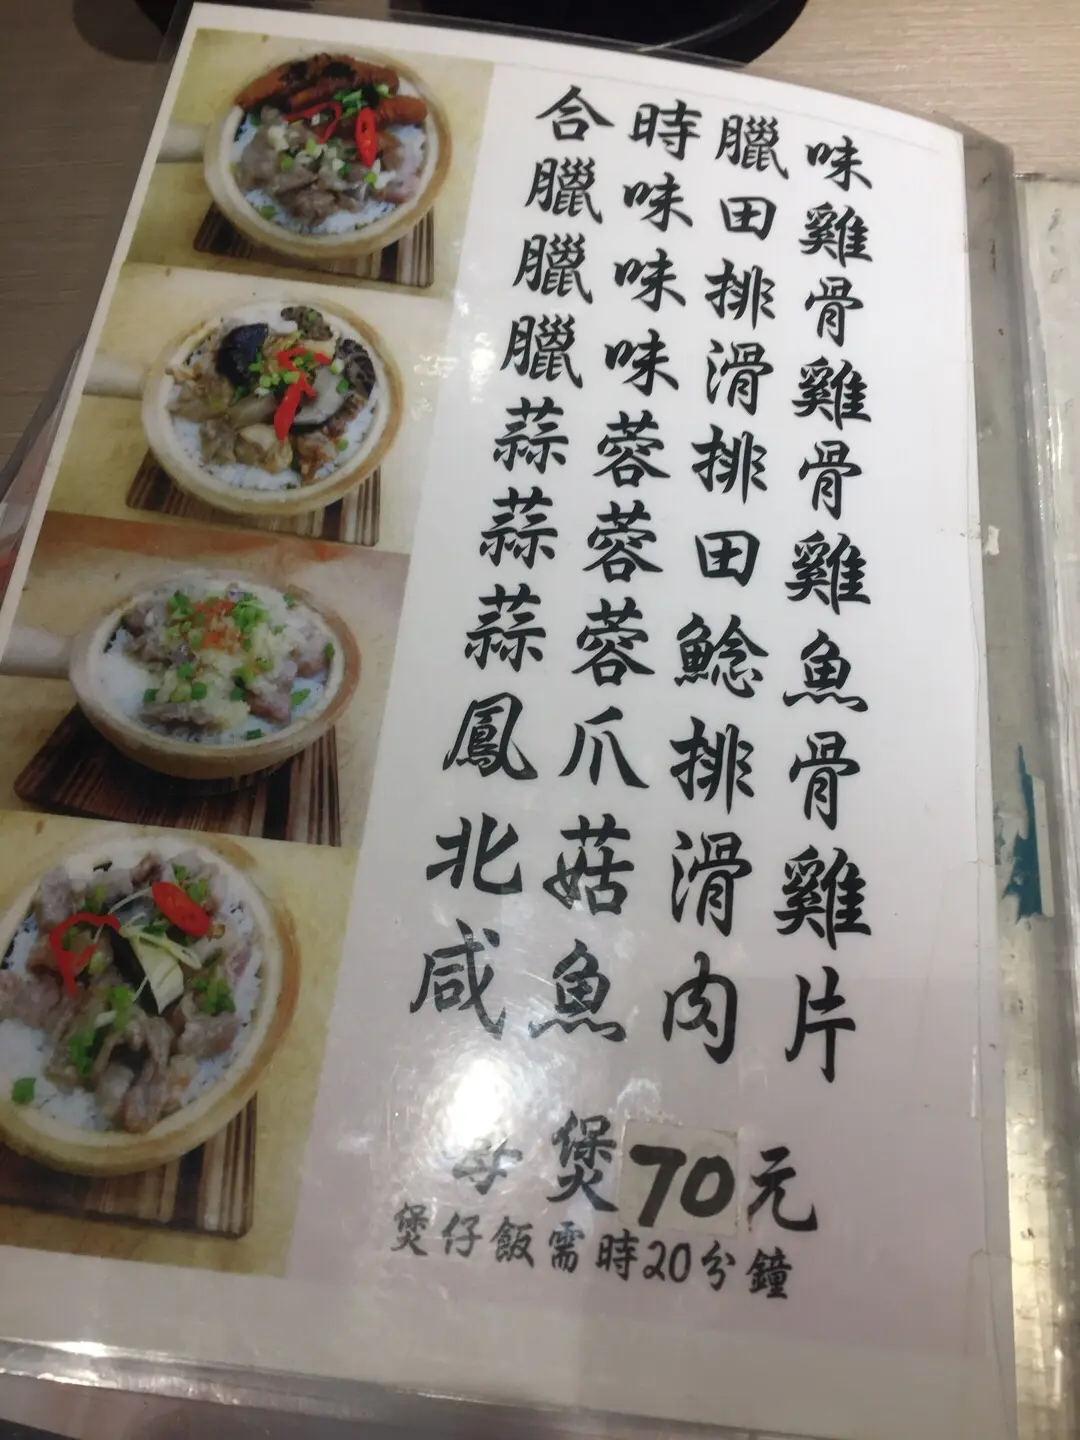 合時臘味
臘味田雞
臘味排骨
臘味滑雞
蒜蓉排骨
蒜蓉田雞
蒜蓉鯰魚
鳳爪排骨
北菇滑雞
咸魚肉片
每煲70元
煲仔飯需時20分鐘